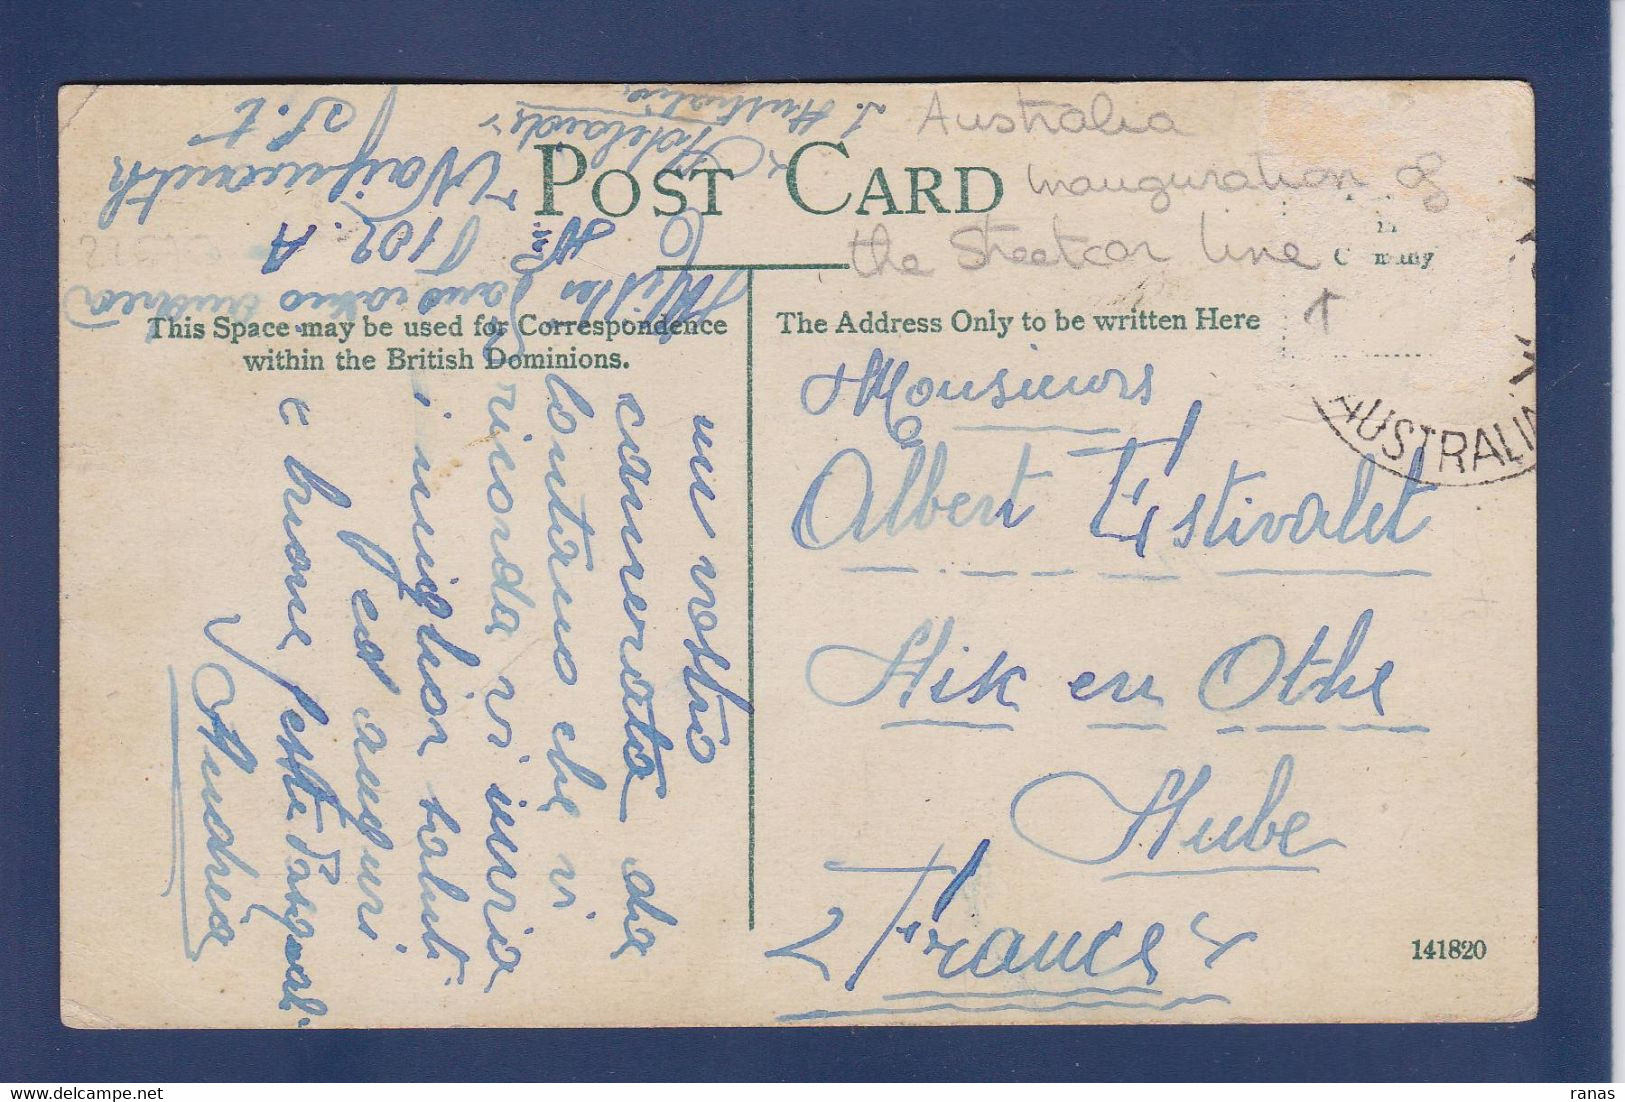 POST CARD
Australia
Inauguration of
the Streetcar line
in
Germany
This Space may be used for Correspondence
within the British Dominions.
The Address Only to be written Here
Monsieurs
Albert Estivalet
Aix en Othe
Aube
France
AUSTRALIA
141820
un vostro
camerata da
lontano che vi
ricorda vi invia
i miglior saluti
ed auguri
e buone feste Pasquali.
Andrea
102. A
Waymouth
S.t
Adelaide
S. Australia
ranas